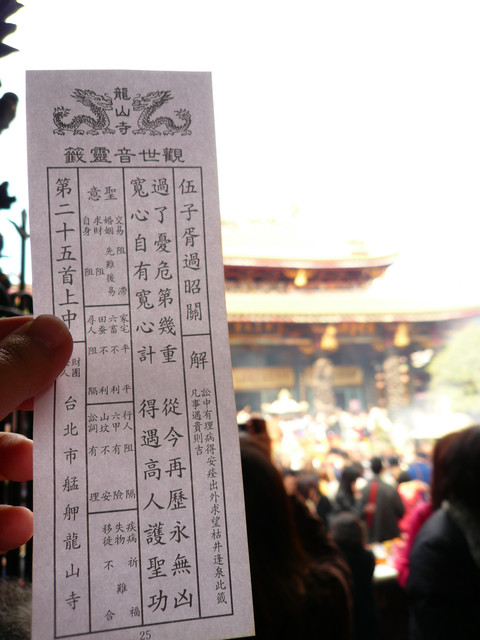 龍山寺
觀世音靈籤
伍子胥過昭關
解
訟中有理病得安痊出外求望枯井逢泉此籤
凡事遇貴則吉
過了憂危第幾重 從今再歷永無凶
寬心自有寬心計 得遇高人護聖功
聖意
交易 阻滯
婚姻 先難後易
求財 阻
自身 阻
家宅 平平
六畜 不利
田蚕 不利
尋人 阻隔
行人 阻隔
六甲 有險
山坟 不安
訟詞 有理
疾病 祈福
失物 難
移徙 不合
第二十五首上中
財團
人
台北市艋舺龍山寺
25